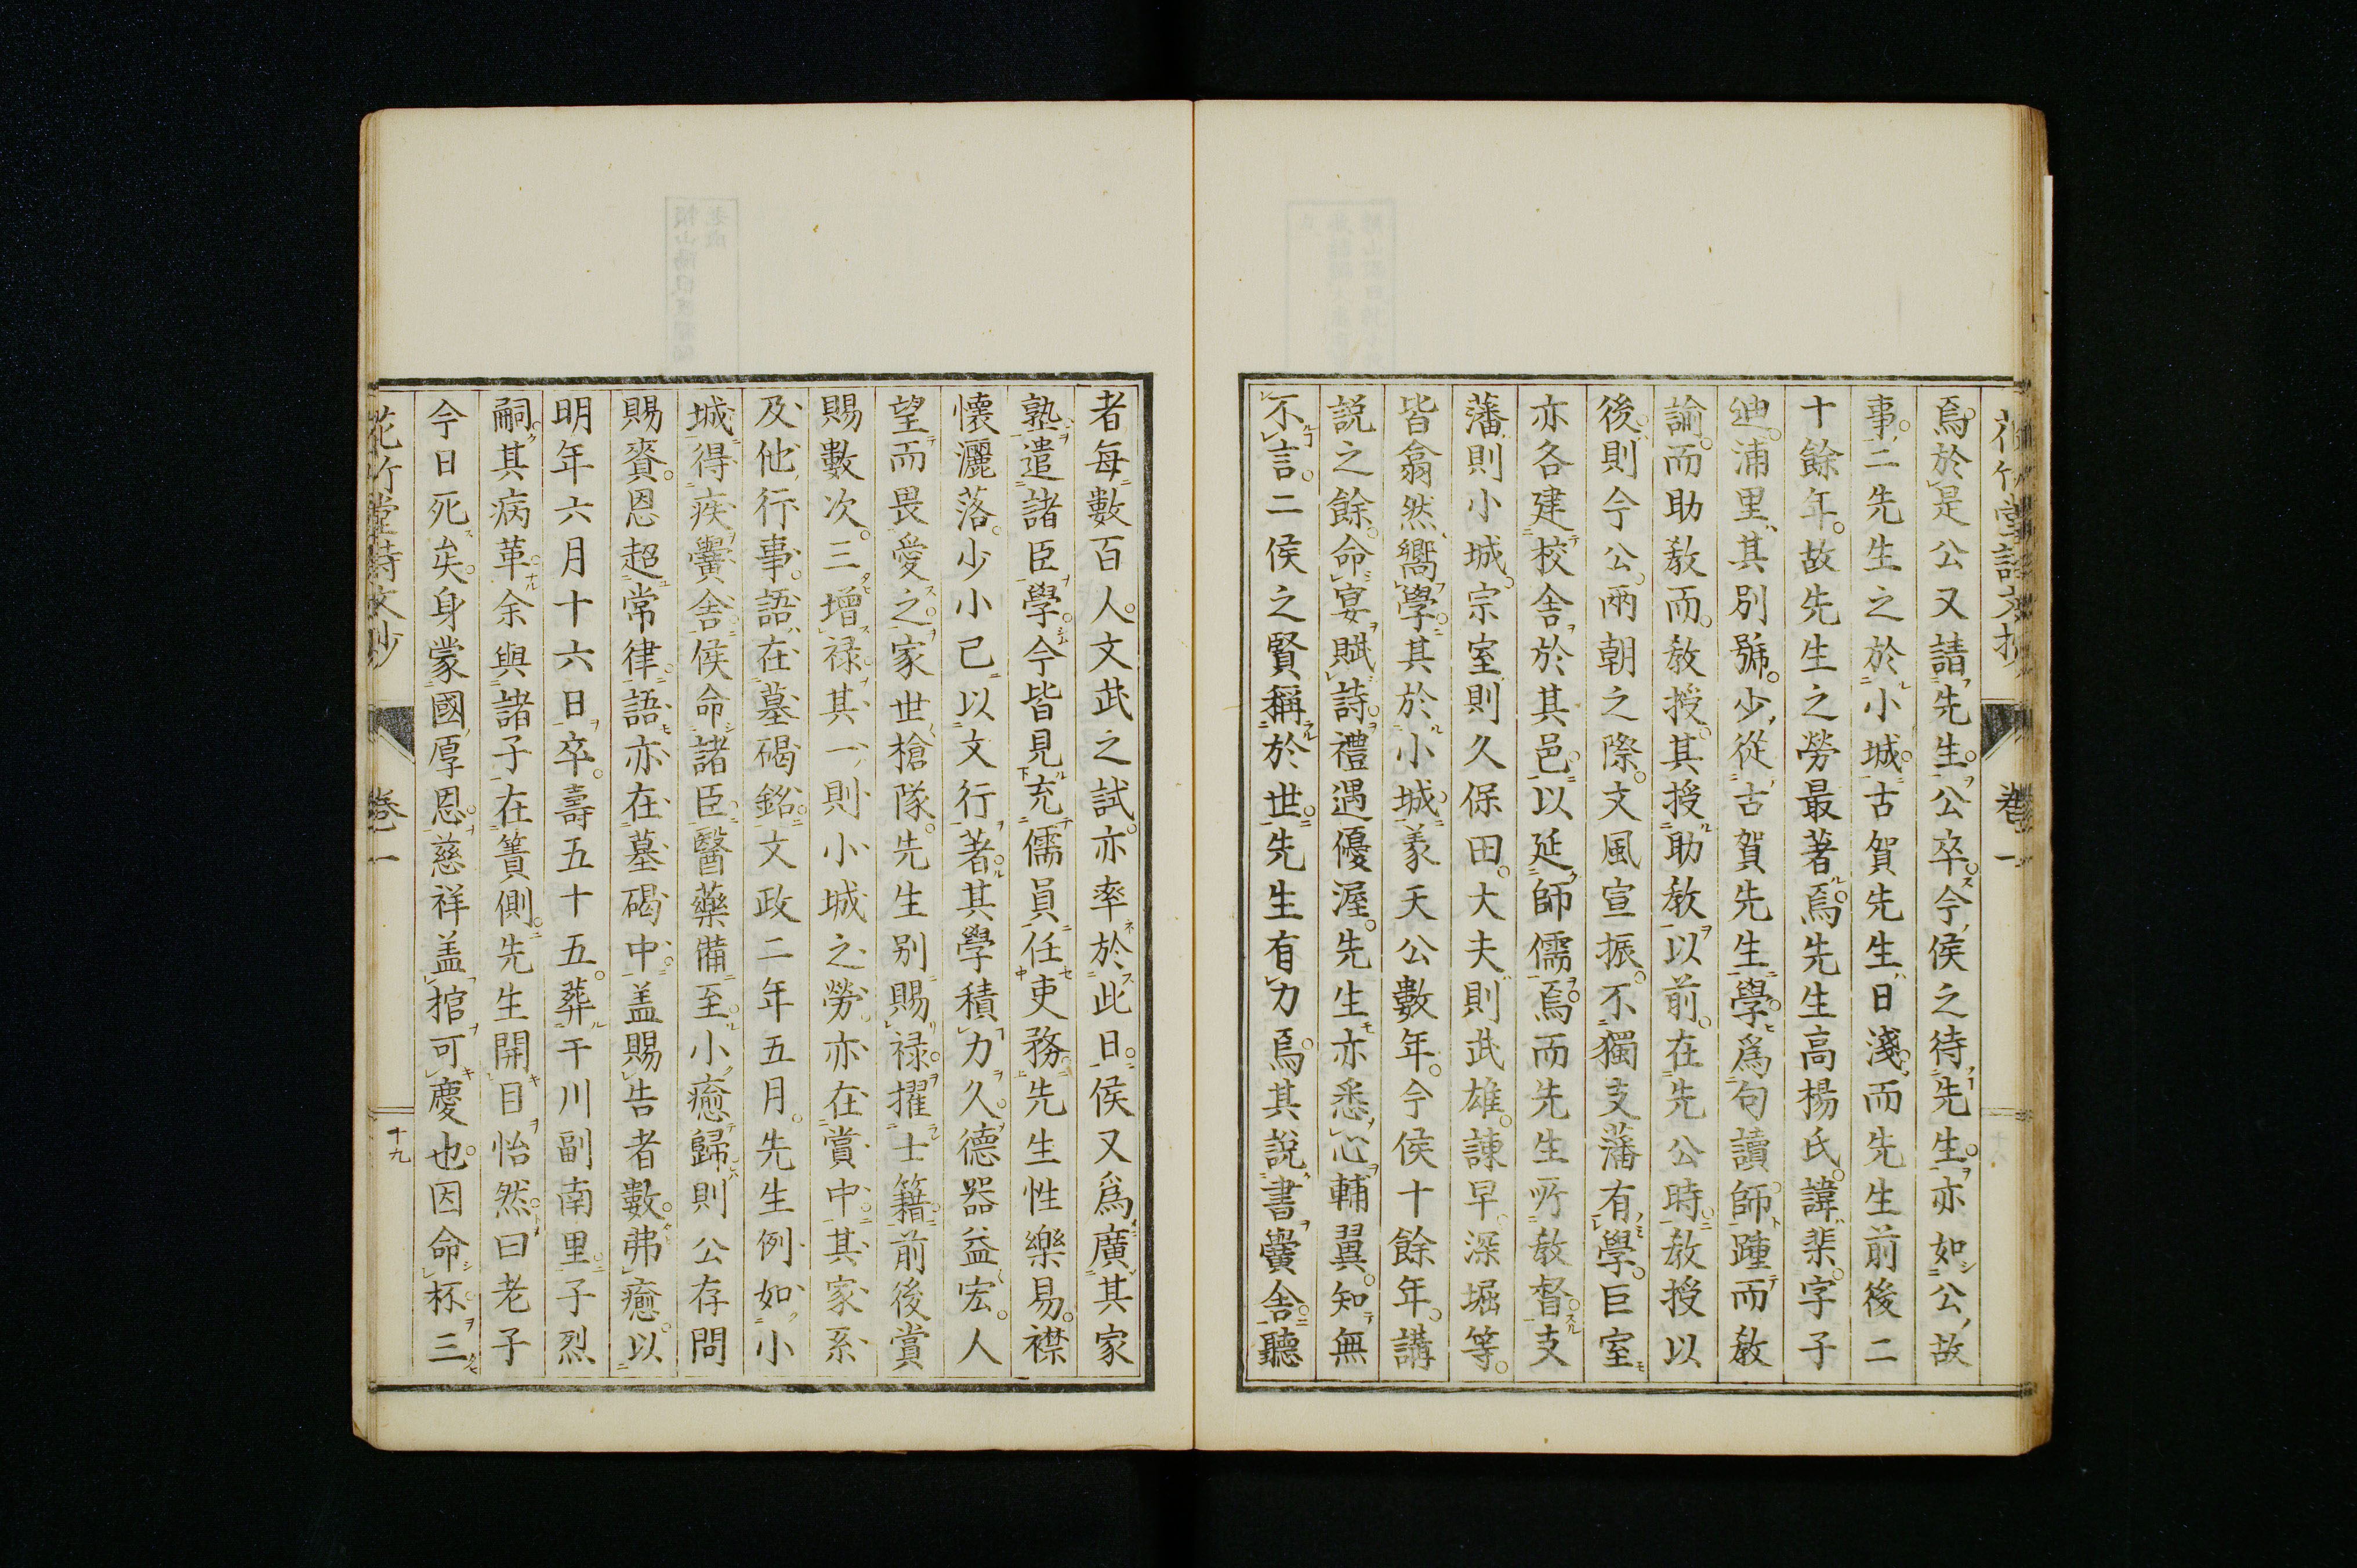 焉於是公又請先生公卒今侯之待先生亦如公故
事二先生之於小城古賀先生日淺而先生前後二
十餘年故先生之勞最著焉先生高楊氏諱棐字子
迪浦里其別號少從古賀先生學爲句讀師踵而教
諭而助教而教授其授助教以前在先公時教授以
後則今公兩朝之際文風宣振不獨支藩有學巨室
亦各建校舎於其邑以延師儒焉而先生所教督支
藩則小城宗室則久保田大夫則武雄諫早深堀等
皆翕然嚮學其於小城羕天公數年今侯十餘年講
説之餘命宴賦詩禮遇優渥先生亦悉心輔翼知無
不言二侯之賢稱於世先生有力焉其説書黌舎聽
者每數百人文武之試亦率於此日侯又爲廣其家
塾遣諸臣學今皆見充儒員任吏務先生性樂易襟
懷灑落少小已以文行著其學積力久德器益宏人
望而畏愛之家世槍隊先生別賜禄擢士籍前後賞
賜數次三增禄其一則小城之勞亦在賞中其家系
及他行事語在墓碣銘文政二年五月先生例如小
城得疾黌舎侯命諸臣醫藥備至小癒歸則公存問
賜賚恩超常律語亦在墓碣中盖賜告者數弗癒以
明年六月十六日卒壽五十五葬干川副南里子烈
嗣其病革余與諸子在簀側先生開目怡然曰老子
今日死矣身蒙國厚恩慈祥盖棺可慶也因命杯三
花竹堂詩文抄 卷一 十九